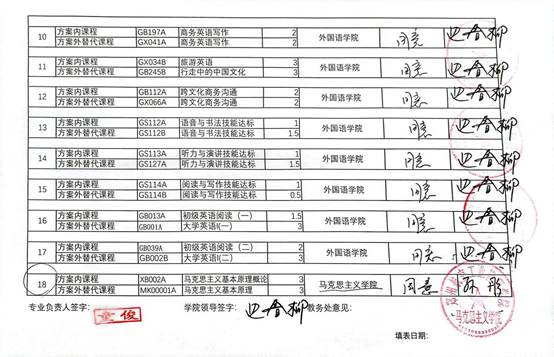 10 方案内课程 GB197A 商务英语写作 2 外国语学院 同意
方案外替代课程 GX041A 商务英语写作 2
11 方案内课程 GX034B 旅游英语 3 外国语学院 同意
方案外替代课程 GB245B 行走中的中国文化 3
12 方案内课程 GB112A 跨文化商务沟通 2 外国语学院 同意
方案外替代课程 GX066A 跨文化商务沟通 2
13 方案内课程 GS112A 语音与书法技能达标 1 外国语学院 同意
方案外替代课程 GS112B 语音与书法技能达标 1.5
14 方案内课程 GS113A 听力与演讲技能达标 1 外国语学院 同意
方案外替代课程 GS127A 听力与演讲技能达标 1.5
15 方案内课程 GS114A 阅读与写作技能达标 1 外国语学院 同意
方案外替代课程 GS114B 阅读与写作技能达标 0.5
16 方案内课程 GB013A 初级英语阅读（一） 1.5 外国语学院 同意
方案外替代课程 GB001A 大学英语I(一) 3
17 方案内课程 GB039A 初级英语阅读（二） 2 外国语学院 同意
方案外替代课程 GB002B 大学英语I(二) 3
18 方案内课程 XB002A 马克思主义基本原理概论 3 马克思主义学院 同意
方案外替代课程 MK00001A 马克思主义基本原理 3
马克思主义学院
专业负责人签字： 学院领导签字： 教务处意见：
填表日期：